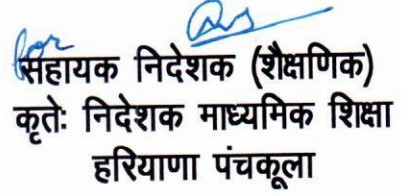 for
सहायक निदेशक (शैक्षणिक)
कृतेः निदेशक माध्यमिक शिक्षा
हरियाणा पंचकूला